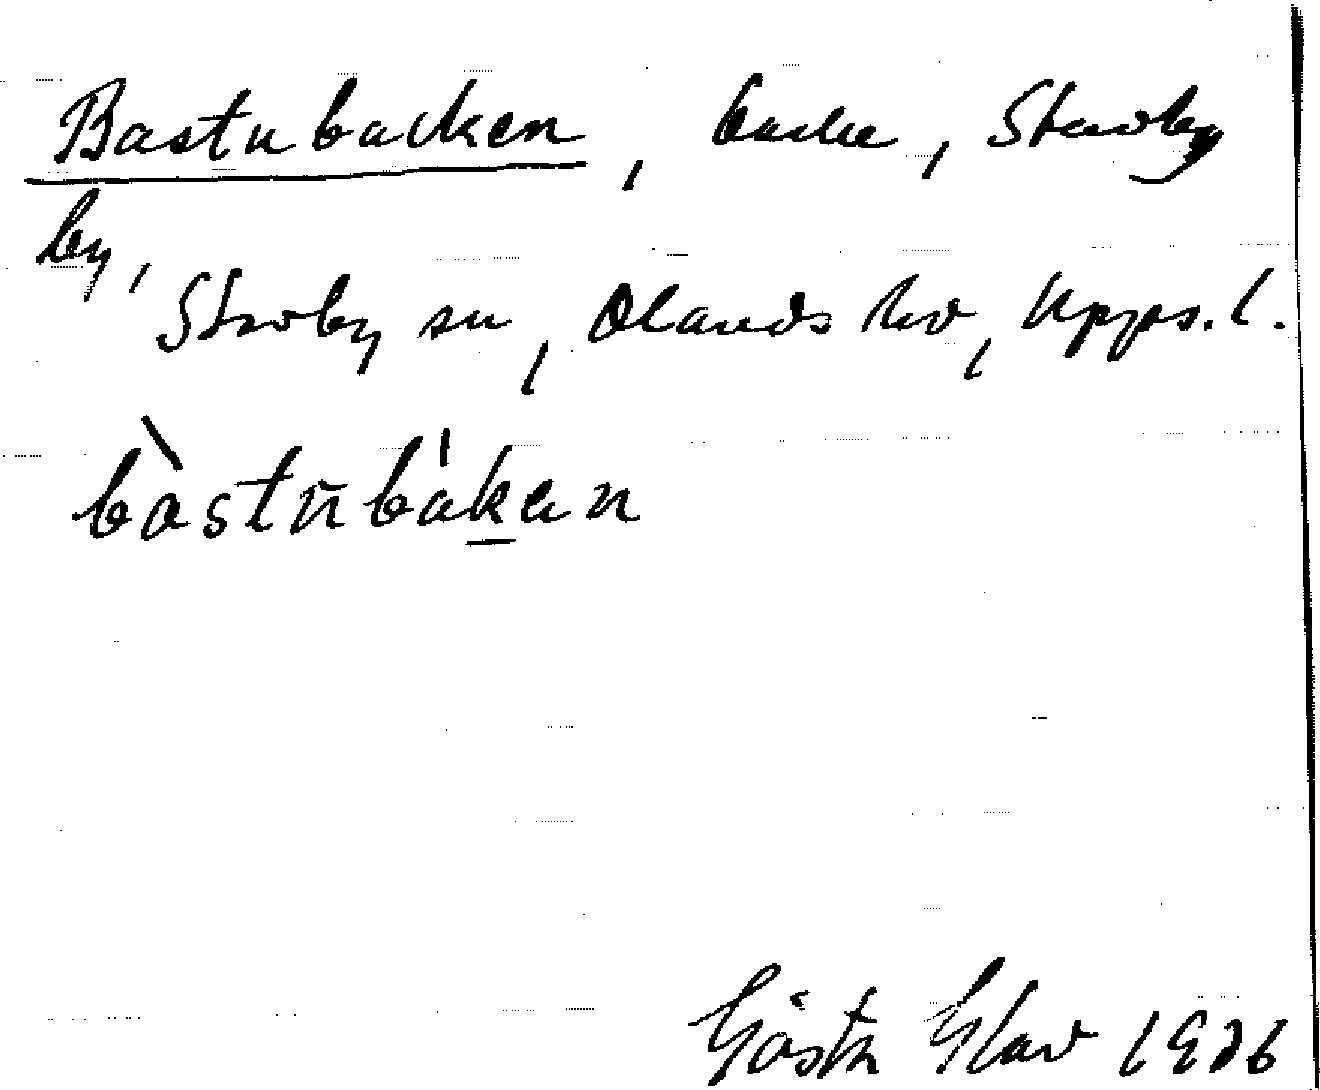 Bastubacken, backe, Stavby
by,
Stavby sn, Olands hd, Upps. l.
bàstūbákan
Gösta Glav 1936